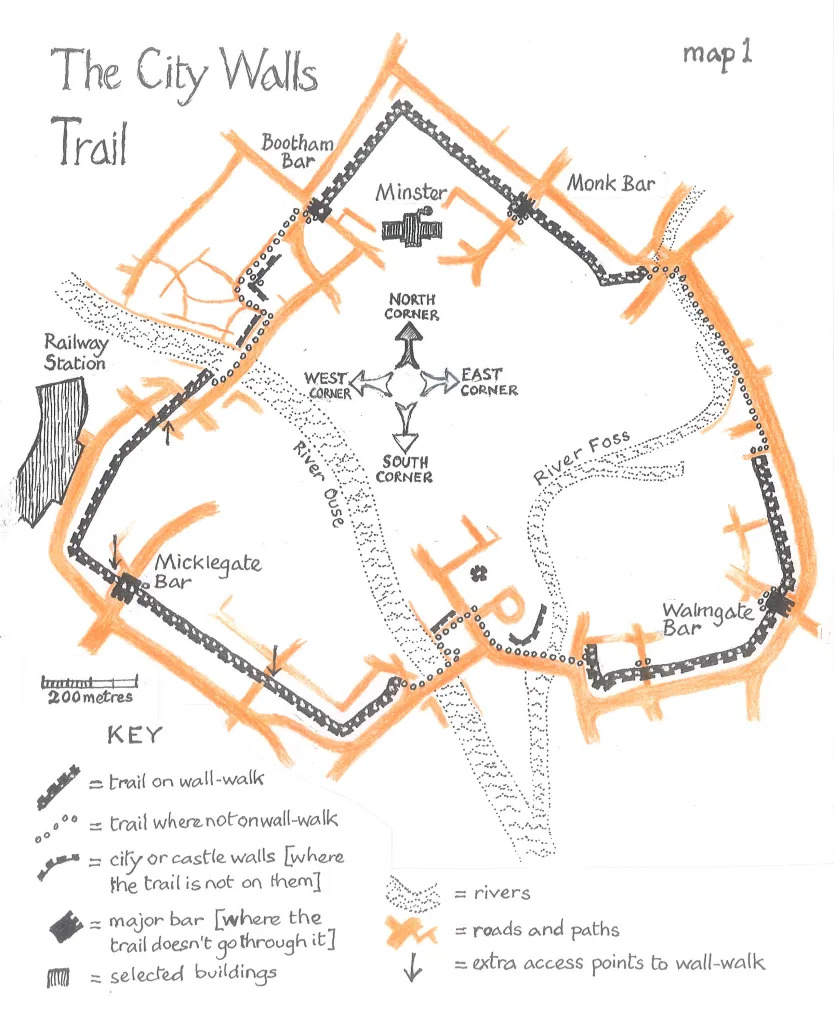 The City Walls
Trail
map 1
Bootham
Bar
Minster
Monk Bar
Railway
Station
NORTH
CORNER
WEST
CORNER
EAST
CORNER
SOUTH
CORNER
River Ouse
River Foss
Micklegate
Bar
Walmgate
Bar
200 metres
KEY
= trail on wall-walk
= trail where not on wall-walk
= city or castle walls [where
the trail is not on them]
= major bar [where the
trail doesn't go through it]
= selected buildings
= rivers
= roads and paths
= extra access points to wall-walk